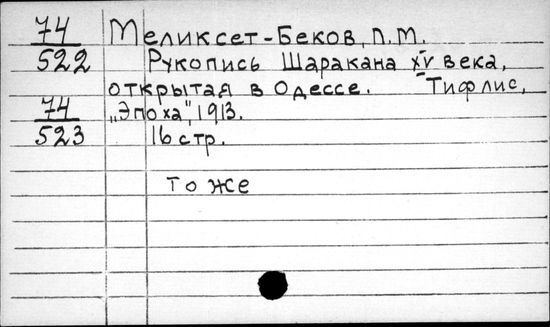 74 Меликсет-Беков, Л.М.
522 Рукопись Шаракана XV века,
открытая в Одессе. - Тифлис,
74 „Эпоха", 1913.
523 16 стр.
То же